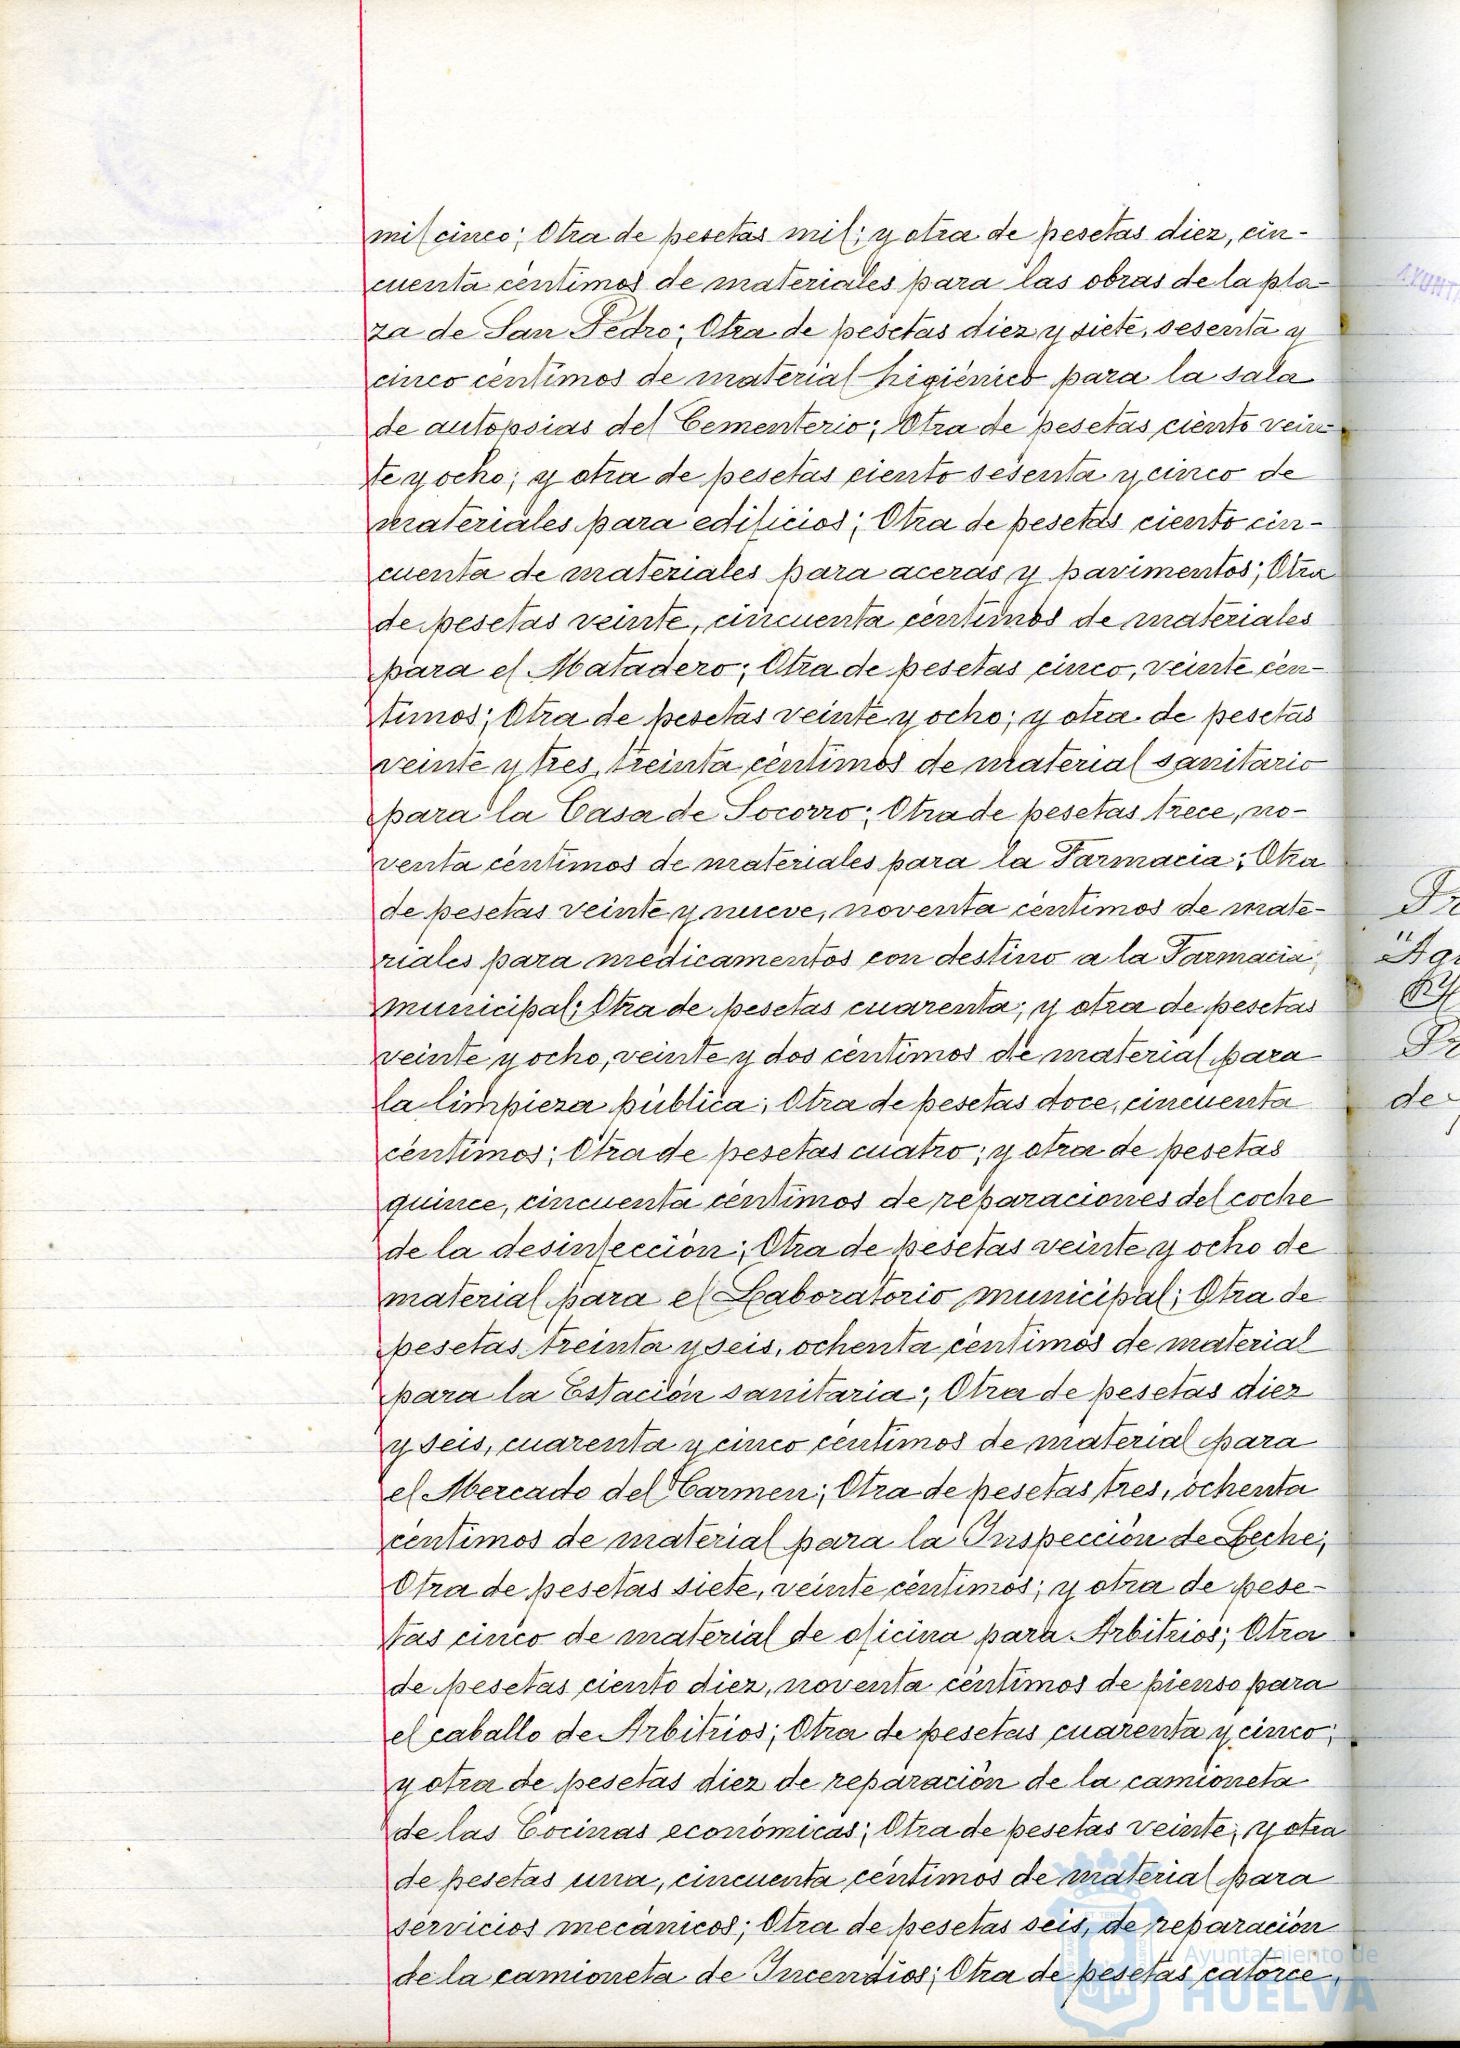 mil cinco; Otra de pesetas mil; y otra de pesetas diez, cin-
cuenta céntimos de materiales para las obras de la pla-
za de San Pedro; Otra de pesetas diez y siete, sesenta y
cinco céntimos de material higiénico para la sala
de autopsias del Cementerio; Otra de pesetas ciento vein-
te y ocho; y otra de pesetas ciento sesenta y cinco de
materiales para edificios; Otra de pesetas ciento cin-
cuenta de materiales para aceras y pavimentos; Otra
de pesetas veinte, cincuenta céntimos de materiales
para el Matadero; Otra de pesetas cinco, veinte cén-
timos; Otra de pesetas veinte y ocho; y otra de pesetas
veinte y tres, treinta céntimos de material sanitario
para la Casa de Socorro; Otra de pesetas trece, no-
venta céntimos de materiales para la Farmacia; Otra
de pesetas veinte y nueve, noventa céntimos de mate-
riales para medicamentos con destino a la Farmacia
municipal; Otra de pesetas cuarenta; y otra de pesetas
veinte y ocho, veinte y dos céntimos de material para
la limpieza pública; Otra de pesetas doce, cincuenta
céntimos; Otra de pesetas cuatro; y otra de pesetas
quince, cincuenta céntimos de reparaciones del coche
de la desinfección; Otra de pesetas veinte y ocho de
material para el Laboratorio municipal; Otra de
pesetas treinta y seis, ochenta céntimos de material
para la Estación sanitaria; Otra de pesetas diez
y seis, cuarenta y cinco céntimos de material para
el Mercado del Carmen; Otra de pesetas tres, ochenta
céntimos de material para la Inspección de Leche;
Otra de pesetas siete, veinte céntimos; y otra de pese-
tas cinco de material de oficina para Arbitrios; Otra
de pesetas ciento diez, noventa céntimos de pienso para
el caballo de Arbitrios; Otra de pesetas cuarenta y cinco;
y otra de pesetas diez de reparación de la camioneta
de las Cocinas económicas; Otra de pesetas veinte; y otra
de pesetas una, cincuenta céntimos de material para
servicios mecánicos; Otra de pesetas seis, de reparación
de la camioneta de Incendios; Otra de pesetas catorce,
Ayuntamiento de
HUELVA
de